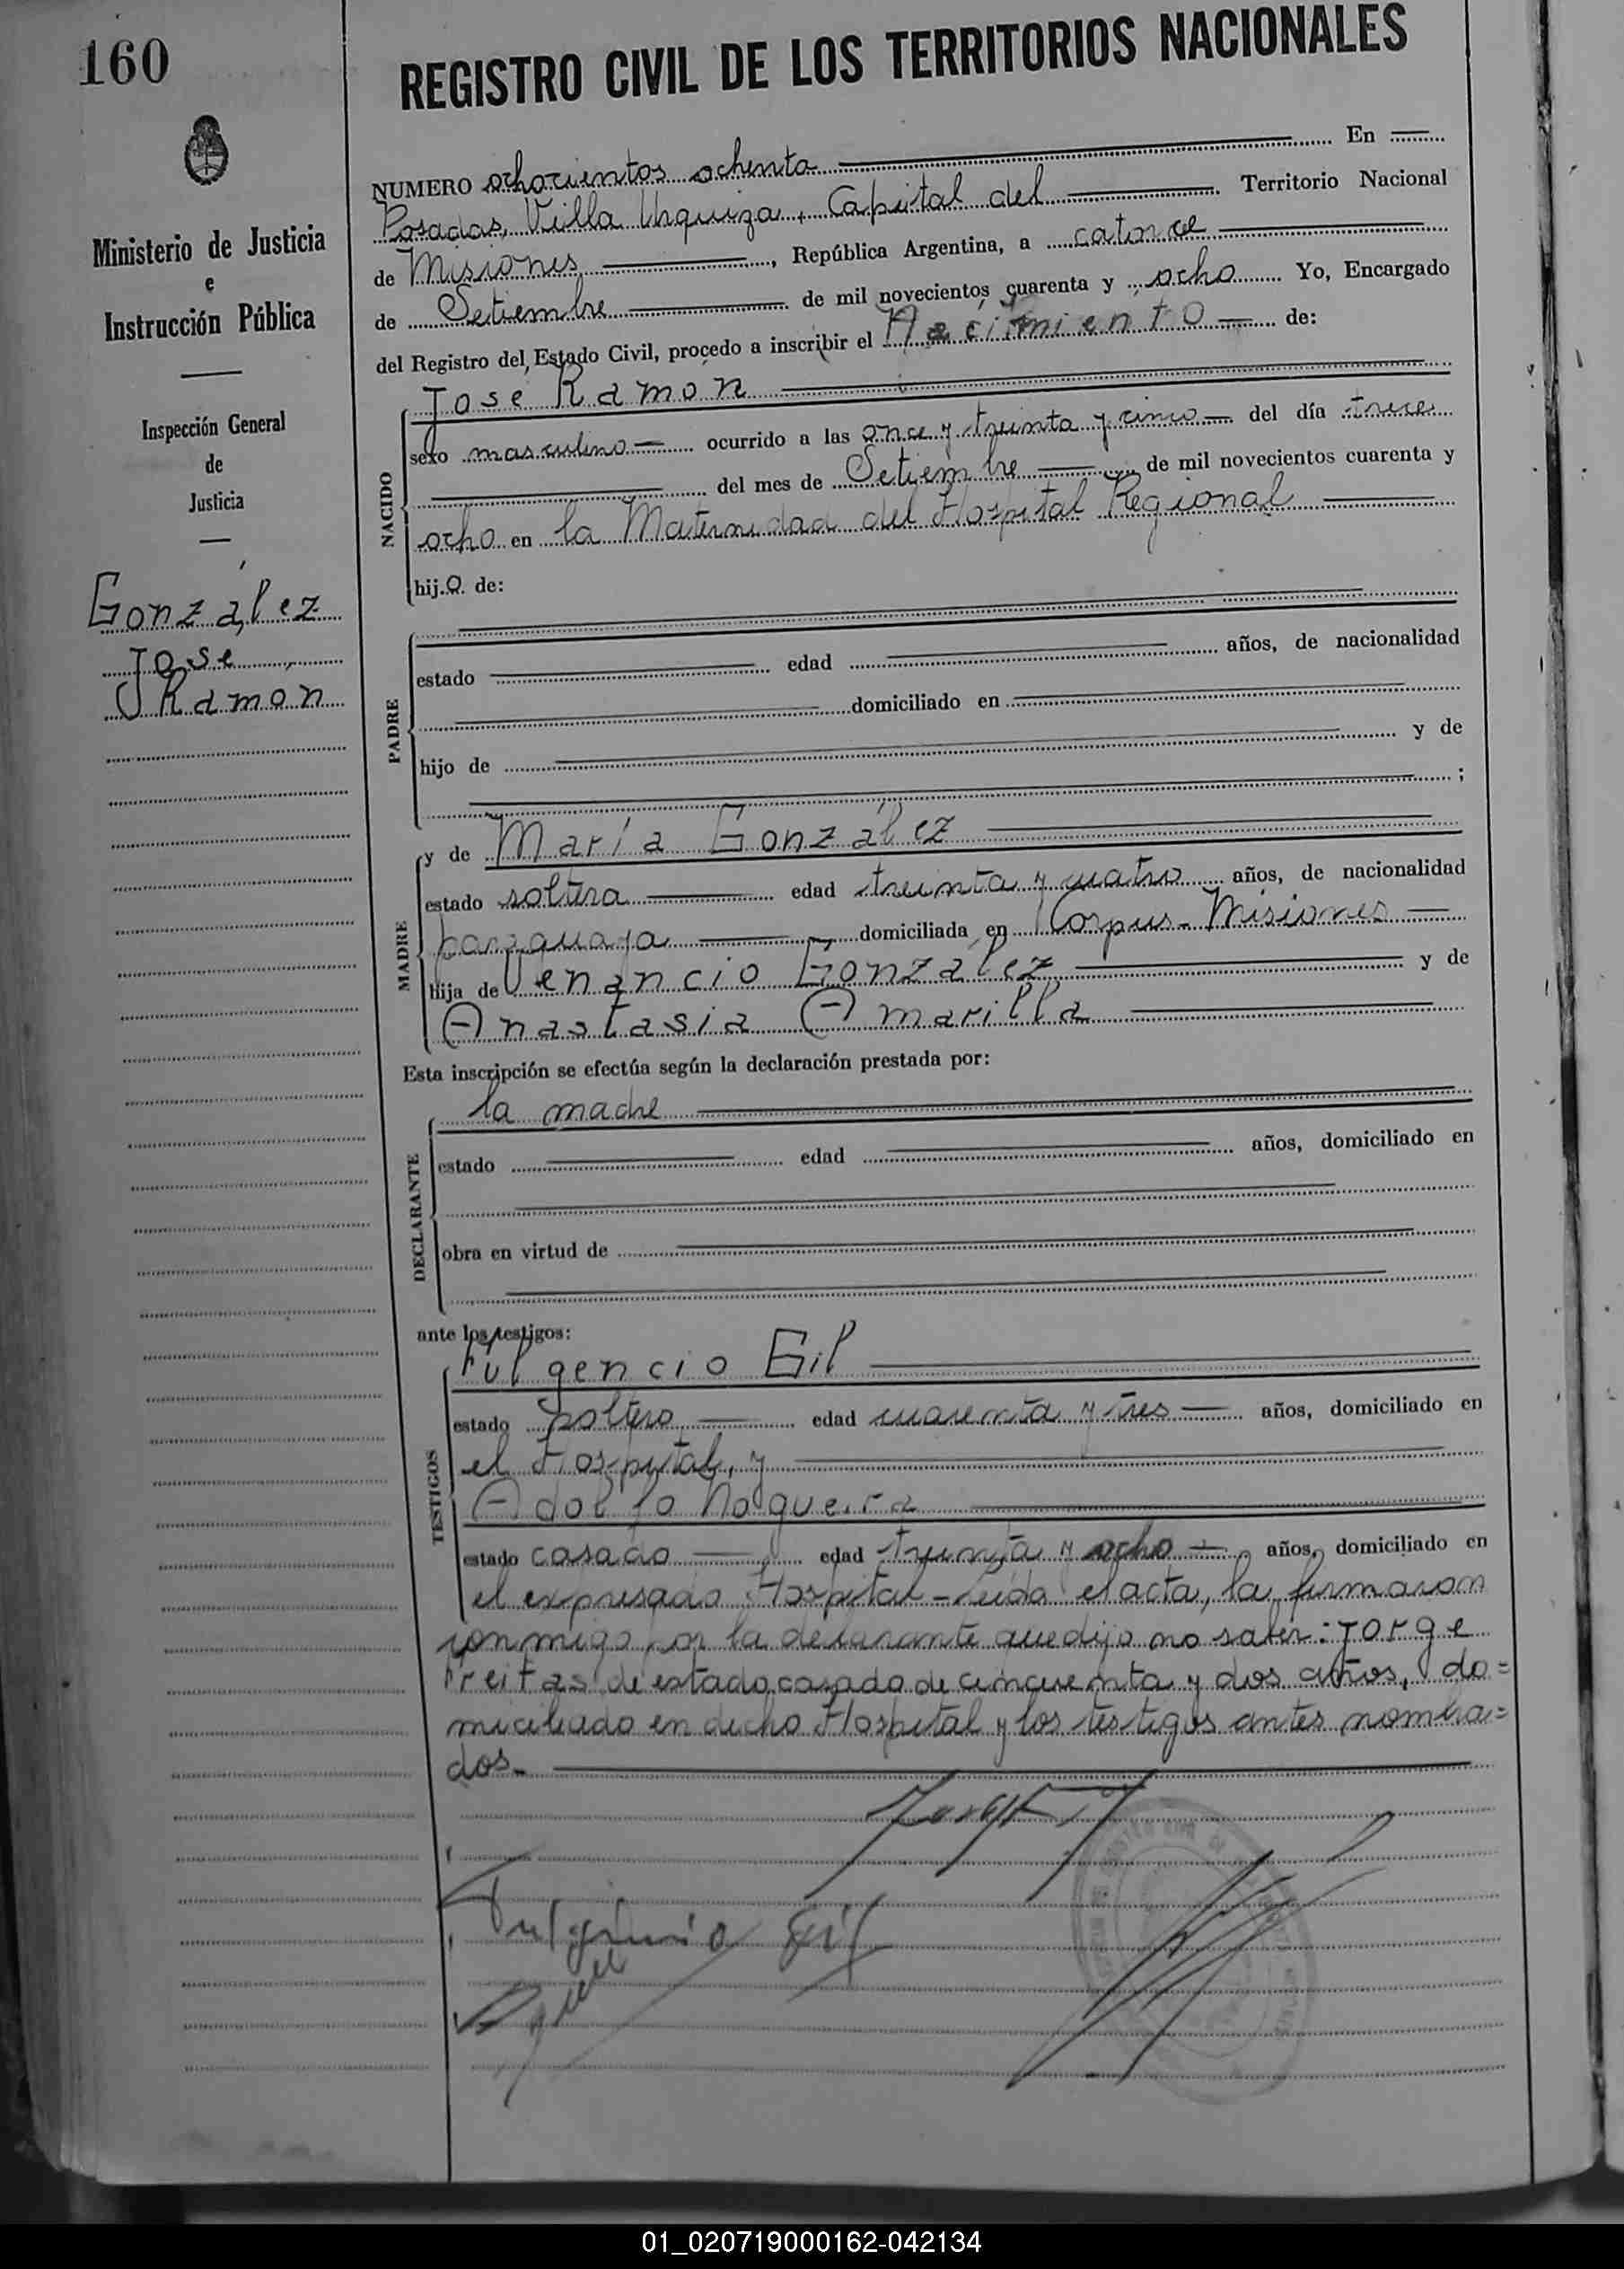 160
REGISTRO CIVIL DE LOS TERRITORIOS NACIONALES
Ministerio de Justicia
e
Instrucción Pública
Inspección General
de
Justicia
González
Jose
Ramón
NUMERO ochocientos ochenta En
Posadas, Villa Urquiza, Capital del Territorio Nacional
de Misiones, República Argentina, a catorce
de Setiembre de mil novecientos cuarenta y ocho Yo, Encargado
del Registro del Estado Civil, procedo a inscribir el Nacimiento de:
NACIDO
Jose Ramón
sexo masculino ocurrido a las once y treinta y cinco del día trece
del mes de Setiembre de mil novecientos cuarenta y
ocho en la Maternidad del Hospital Regional
hijo de:
PADRE
estado edad años, de nacionalidad
domiciliado en
hijo de y de
;
MADRE
y de María González
estado soltera edad treinta y cuatro años, de nacionalidad
paraguaya domiciliada en Corpus-Misiones
hija de Venancio González y de
Anastasia Amarilla
Esta inscripción se efectúa según la declaración prestada por:
DECLARANTE
la madre
estado edad años, domiciliado en
obra en virtud de
ante los testigos:
TESTIGOS
Fulgencio Gil
estado soltero edad cuarenta y tres años, domiciliado en
el Hospital, y
Adolfo Nogueira
estado casado edad treinta y ocho años, domiciliado en
el expresado Hospital - Leída el acta, la firmaron
conmigo por la declarante que dijo no saber: Jorge
Freitas de estado casado de cincuenta y dos años, do=
miciliado en dicho Hospital y los testigos antes nombra=
dos.
Fulgencio Gil
01_020719000162-042134